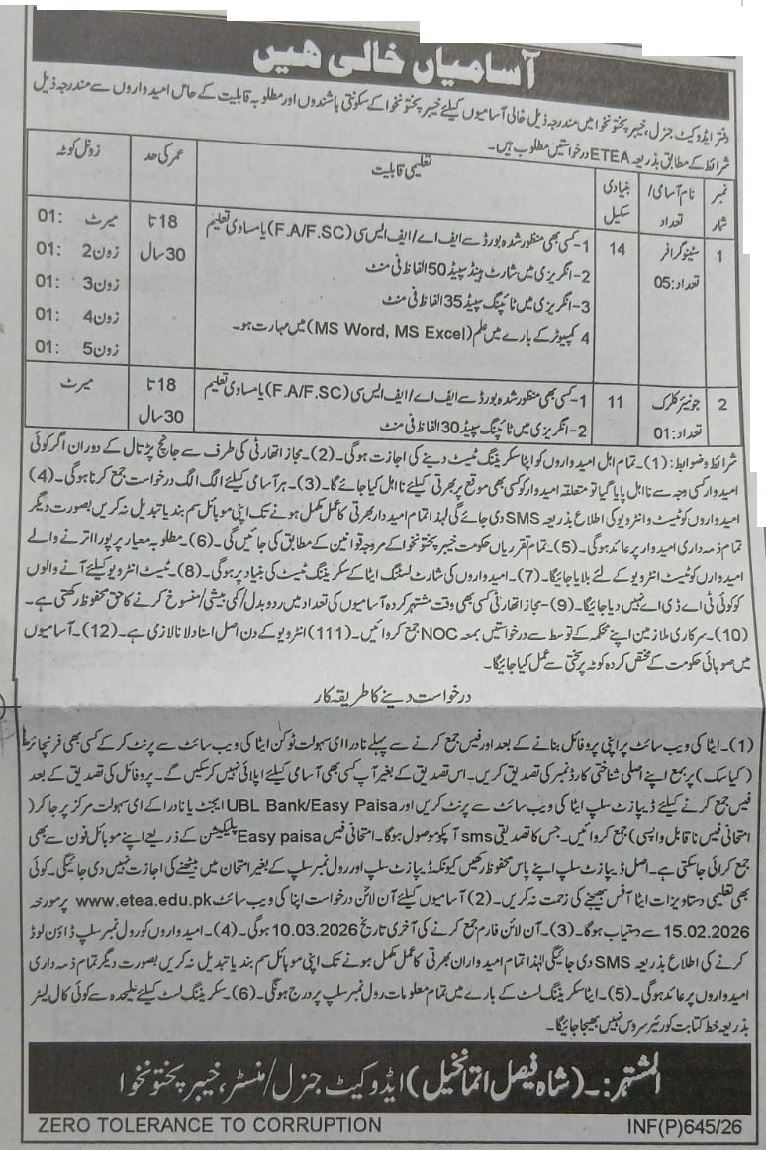 آسامیاں خالی ہیں
دفتر ایڈوکیٹ جنرل، خیبر پختونخوا میں مندرجہ ذیل خالی آسامیوں کیلئے خیبر پختونخوا کے سکونتی باشندوں اور مطلوبہ قابلیت کے حامل امیدواروں سے مندرجہ ذیل
شرائط کے مطابق بذریعہ ETEA درخواستیں مطلوب ہیں۔
نمبر شمار | نام آسامی/ تعداد | بنیادی سکیل | تعلیمی قابلیت | عمر کی حد | زونل کوٹہ
1 | سٹینوگرافر تعداد:05 | 14 | 1- کسی بھی منظور شدہ بورڈ سے ایف اے/ ایف ایس سی (F.A/F.SC) یا مساوی تعلیم | 18 تا 30 سال | میرٹ :01
2- انگریزی میں شارٹ ہینڈ سپیڈ 50 الفاظ فی منٹ | زون2 :01
3- انگریزی میں ٹائپنگ سپیڈ 35 الفاظ فی منٹ | زون3 :01
4 کمپیوٹر کے بارے میں علم (MS Word, MS Excel) میں مہارت ہو۔ | زون4 :01
زون5 :01
2 | جونیئر کلرک تعداد:01 | 11 | 1- کسی بھی منظور شدہ بورڈ سے ایف اے/ ایف ایس سی (F.A/F.SC) یا مساوی تعلیم | 18 تا 30 سال | میرٹ
2- انگریزی میں ٹائپنگ سپیڈ 30 الفاظ فی منٹ
شرائط و ضوابط: (1)۔ تمام اہل امیدواروں کو اپنا سکریننگ ٹیسٹ دینے کی اجازت ہوگی۔ (2)۔ مجاز اتھارٹی کی طرف سے جانچ پڑتال کے دوران اگر کوئی
امیدوار کسی وجہ سے نااہل پایا گیا تو متعلقہ امیدوار کو کسی بھی موقع پر بھرتی کیلئے نااہل کیا جائے گا۔ (3)۔ ہر آسامی کیلئے الگ الگ درخواست جمع کرنا ہوگی۔ (4)
امیدواروں کو ٹیسٹ و انٹرویو کی اطلاع بذریعہ SMS دی جائے گی لہٰذا تمام امیدوار بھرتی کا عمل مکمل ہونے تک اپنی موبائل سم بند یا تبدیل نہ کریں بصورت دیگر
تمام ذمہ داری امیدوار پر عائد ہوگی۔ (5)۔ تمام تقرریاں حکومت خیبر پختونخوا کے مروجہ قوانین کے مطابق کی جائیں گی۔ (6)۔ مطلوبہ معیار پر پورا اترنے والے
امیدواروں کو ٹیسٹ انٹرویو کے لئے بلایا جائیگا۔ (7)۔ امیدواروں کی شارٹ لسٹنگ ایٹا کے سکریننگ ٹیسٹ کی بنیاد پر ہوگی۔ (8)۔ ٹیسٹ انٹرویو کیلئے آنے والوں
کو کوئی ٹی اے ڈی اے نہیں دیا جائیگا۔ (9)۔ مجاز اتھارٹی کسی بھی وقت مشتہر کردہ آسامیوں کی تعداد میں ردوبدل/ کمی بیشی/ منسوخ کرنے کا حق محفوظ رکھتی ہے۔
(10)۔ سرکاری ملازمین اپنے محکمہ کے توسط سے درخواستیں بمعہ NOC جمع کروائیں۔ (111) انٹرویو کے دن اصل اسناد لانا لازمی ہے۔ (12)۔ آسامیوں
میں صوبائی حکومت کے مختص کردہ کوٹہ پر سختی سے عمل کیا جائیگا۔
درخواست دینے کا طریقہ کار
(1)۔ ایٹا کی ویب سائٹ پر اپنی پروفائل بنانے کے بعد اور فیس جمع کرنے سے پہلے نادرا ای سہولت ٹوکن ایٹا کی ویب سائٹ سے پرنٹ کر کے کسی بھی فرنچائز
(کیاسک) پر بمع اپنے اصلی شناختی کارڈ نمبر کی تصدیق کریں۔ اس تصدیق کے بغیر آپ کسی بھی آسامی کیلئے اپلائی نہیں کر سکیں گے۔ پروفائل کی تصدیق کے بعد
فیس جمع کرنے کیلئے ڈیپازٹ سلپ ایٹا کی ویب سائٹ سے پرنٹ کریں اور UBL Bank/Easy Paisa ایجنٹ یا نادرا کے ای سہولت مرکز پر جا کر (
امتحانی فیس ناقابل واپسی) جمع کروائیں۔ جس کا تصدیقی sms آپکو موصول ہوگا۔ امتحانی فیس Easy paisa ایپلیکیشن کے ذریعے اپنے موبائل فون سے بھی
جمع کرائی جاسکتی ہے۔ اصل ڈیپازٹ سلپ اپنے پاس محفوظ رکھیں کیونکہ ڈیپازٹ سلپ اور رول نمبر سلپ کے بغیر امتحان میں بیٹھنے کی اجازت نہیں دی جائیگی۔ کوئی
بھی تعلیمی دستاویزات ایٹا آفس بھیجنے کی زحمت نہ کریں۔ (2) آسامیوں کیلئے آن لائن درخواست اپنا کی ویب سائٹ www.etea.edu.pk پر مورخہ
15.02.2026 سے دستیاب ہوگا۔ (3)۔ آن لائن فارم جمع کرنے کی آخری تاریخ 10.03.2026 ہوگی۔ (4)۔ امیدواروں کو رول نمبر سلپ ڈاؤن لوڈ
کرنے کی اطلاع بذریعہ SMS دی جائیگی لہٰذا تمام امیدواران بھرتی کا عمل مکمل ہونے تک اپنی موبائل سم بند یا تبدیل نہ کریں بصورت دیگر تمام ذمہ داری
امیدواروں پر عائد ہوگی۔ (5)۔ ایٹا سکریننگ ٹسٹ کے بارے میں تمام معلومات رول نمبر سلپ پر درج ہونگی۔ (6)۔ سکریننگ ٹسٹ کیلئے علیحدہ سے کوئی کال لیٹر
بذریعہ خط کتابت کورئیر سروس نہیں بھیجا جائیگا۔
المشتہر:۔ (شاہ فیصل اتمانخیل) ایڈوکیٹ جنرل/ منسٹر، خیبر پختونخوا
ZERO TOLERANCE TO CORRUPTION INF(P)645/26